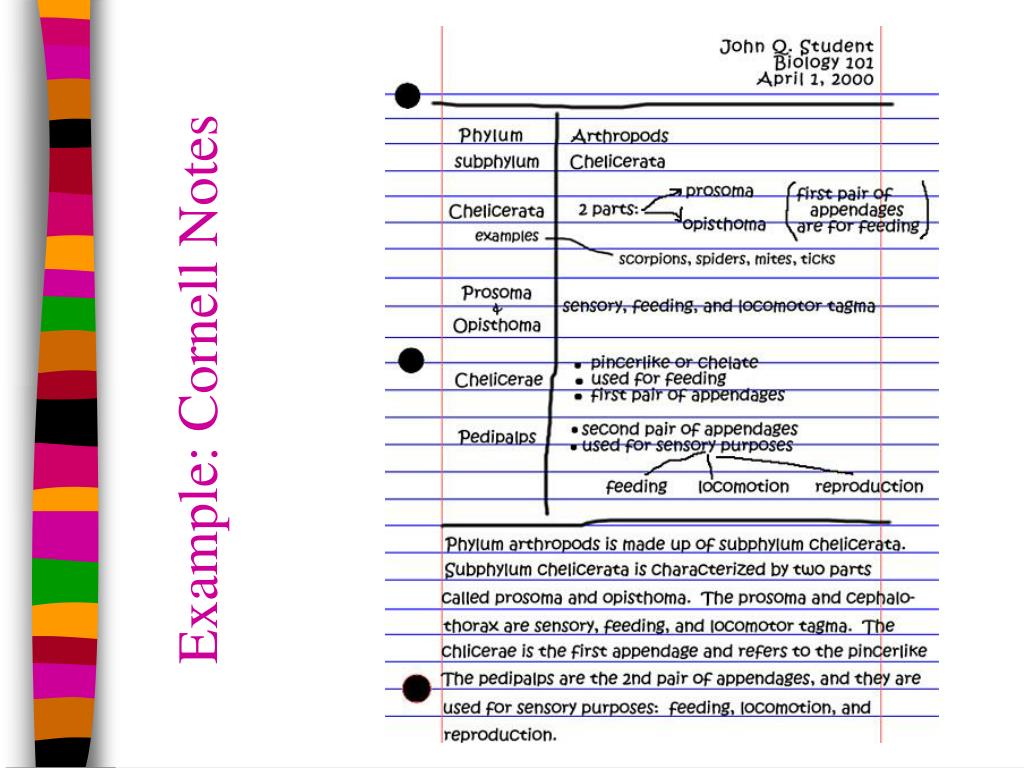 Example: Cornell Notes
John Q. Student
Biology 101
April 1, 2000
Phylum Arthropods
subphylum Chelicerata
Chelicerata 2 parts: prosoma
opisthoma
(first pair of
appendages
are for feeding)
examples
scorpions, spiders, mites, ticks
Prosoma
&
Opisthoma
sensory, feeding, and locomotor tagma
Chelicerae
• pincerlike or chelate
• used for feeding
• first pair of appendages
Pedipalps
• second pair of appendages
• used for sensory purposes
feeding locomotion reproduction
Phylum arthropods is made up of subphylum chelicerata.
Subphylum chelicerata is characterized by two parts
called prosoma and opisthoma. The prosoma and cephalo-
thorax are sensory, feeding, and locomotor tagma. The
chlicerae is the first appendage and refers to the pincerlike
The pedipalps are the 2nd pair of appendages, and they are
used for sensory purposes: feeding, locomotion, and
reproduction.